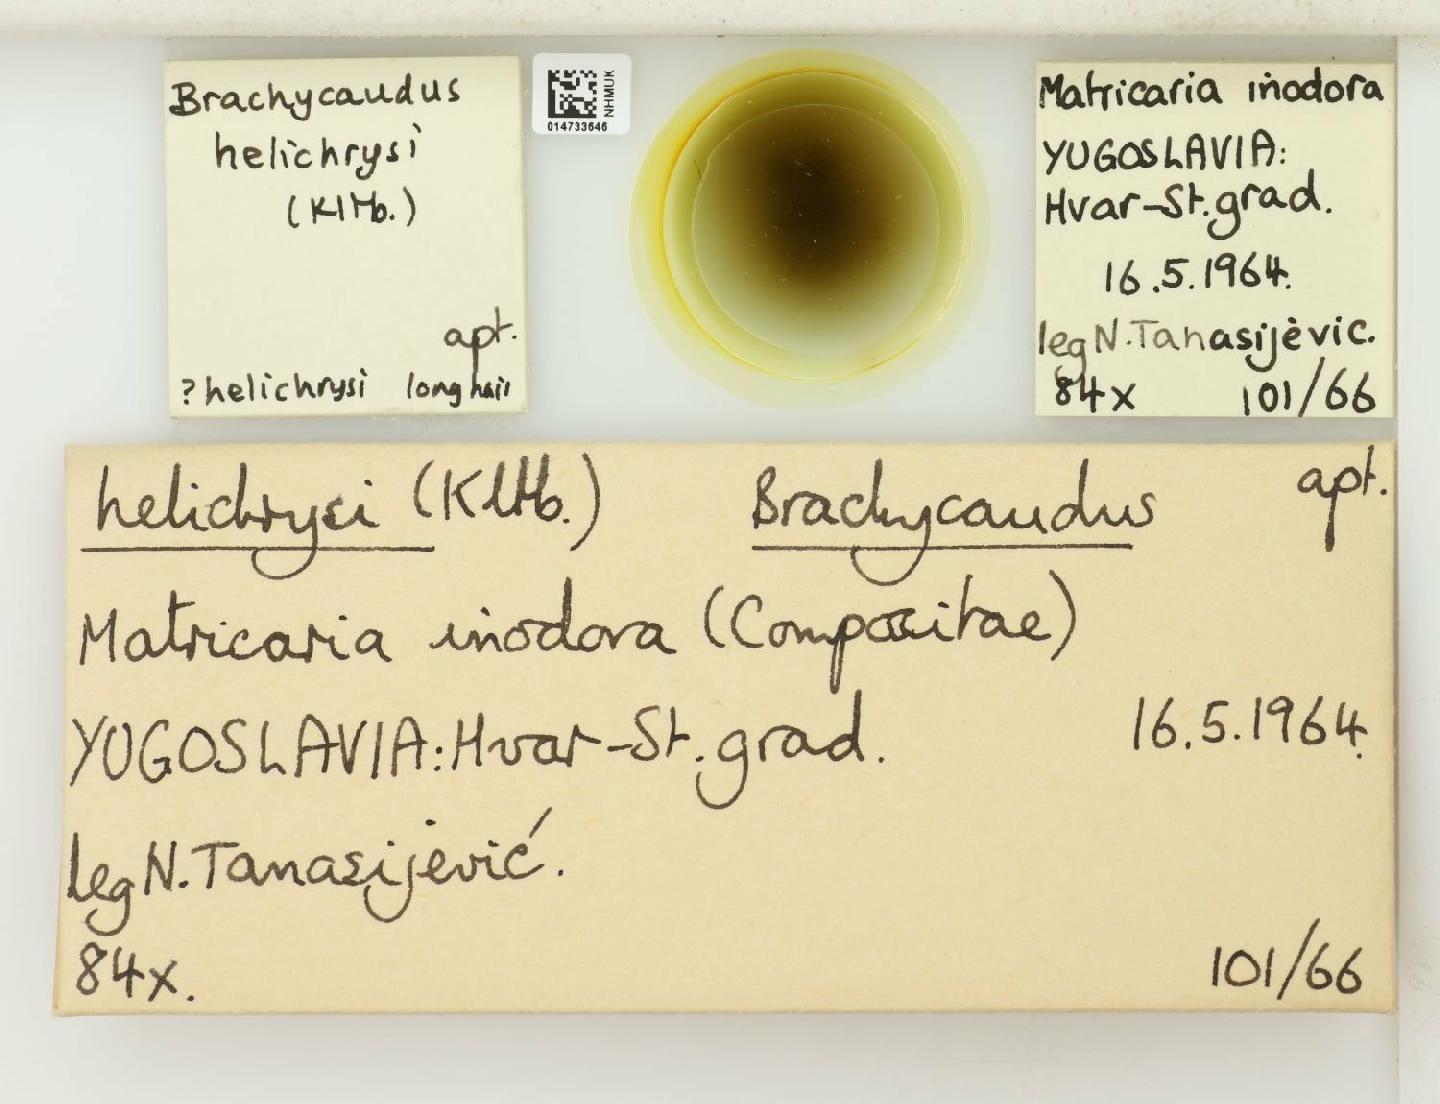 Brachycaudus
helichrysi
(Kltb.)
apt.
? helichrysi long hair
NHMUK
014733646
Matricaria inodora
YUGOSLAVIA:
Hvar-St.grad.
16.5.1964.
leg N.Tanasijevic.
84x 101/66
helichrysi (Kltb.) Brachycaudus apt.
Matricaria inodora (Compositae)
YUGOSLAVIA:Hvar-St.grad. 16.5.1964.
leg N.Tanasijević.
84x. 101/66